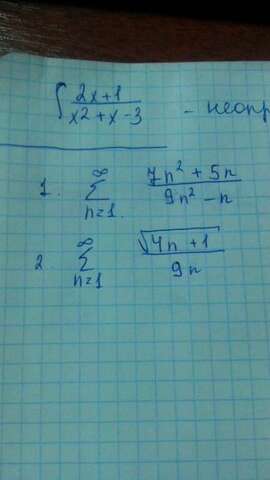 ∫ (2x+1)/(x2+x-3) -
1. ∑_{n=1.}^{∞} (7n² + 5n)/(9n² - n)
2 ∑_{n=1}^{∞} √(4n + 1)/(9n)